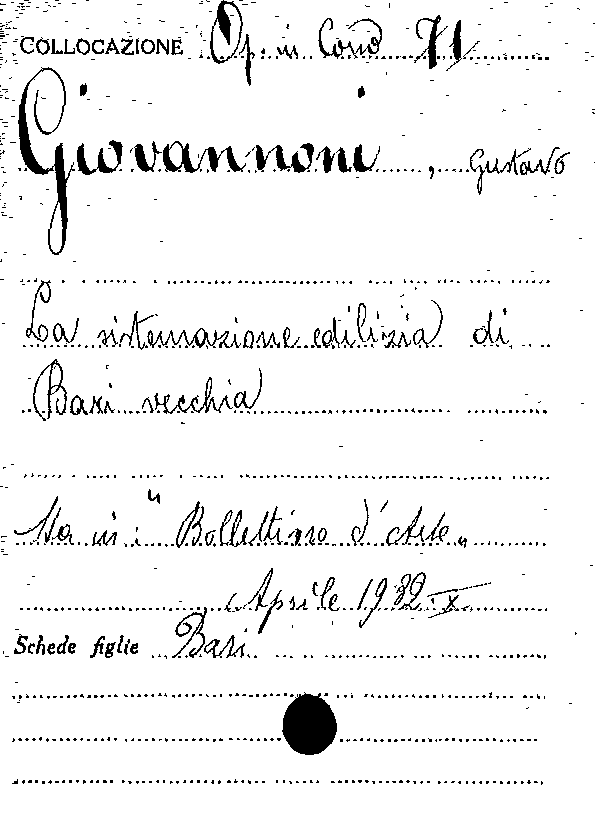 COLLOCAZIONE Op. in Cons 71
Giovannoni, Gustavo
La sistemazione edilizia di
Bari vecchia
Sta in: "Bollettino d'Arte"
Aprile 1932 X
Schede figlie Bari